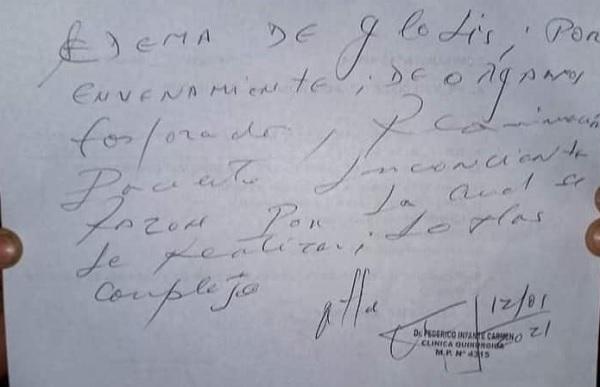 EDEMA DE glotis; POR
ENVENAMIENTE; DE ORGANOS
fosforados,
Paciente Inconciente
Razon Por La cual se
Le realizan;
complejo
12/01
2021
Dr. FEDERICO INFANTE CARMEN
CLINICA QUIRURGICA
M.P. Nº 4315